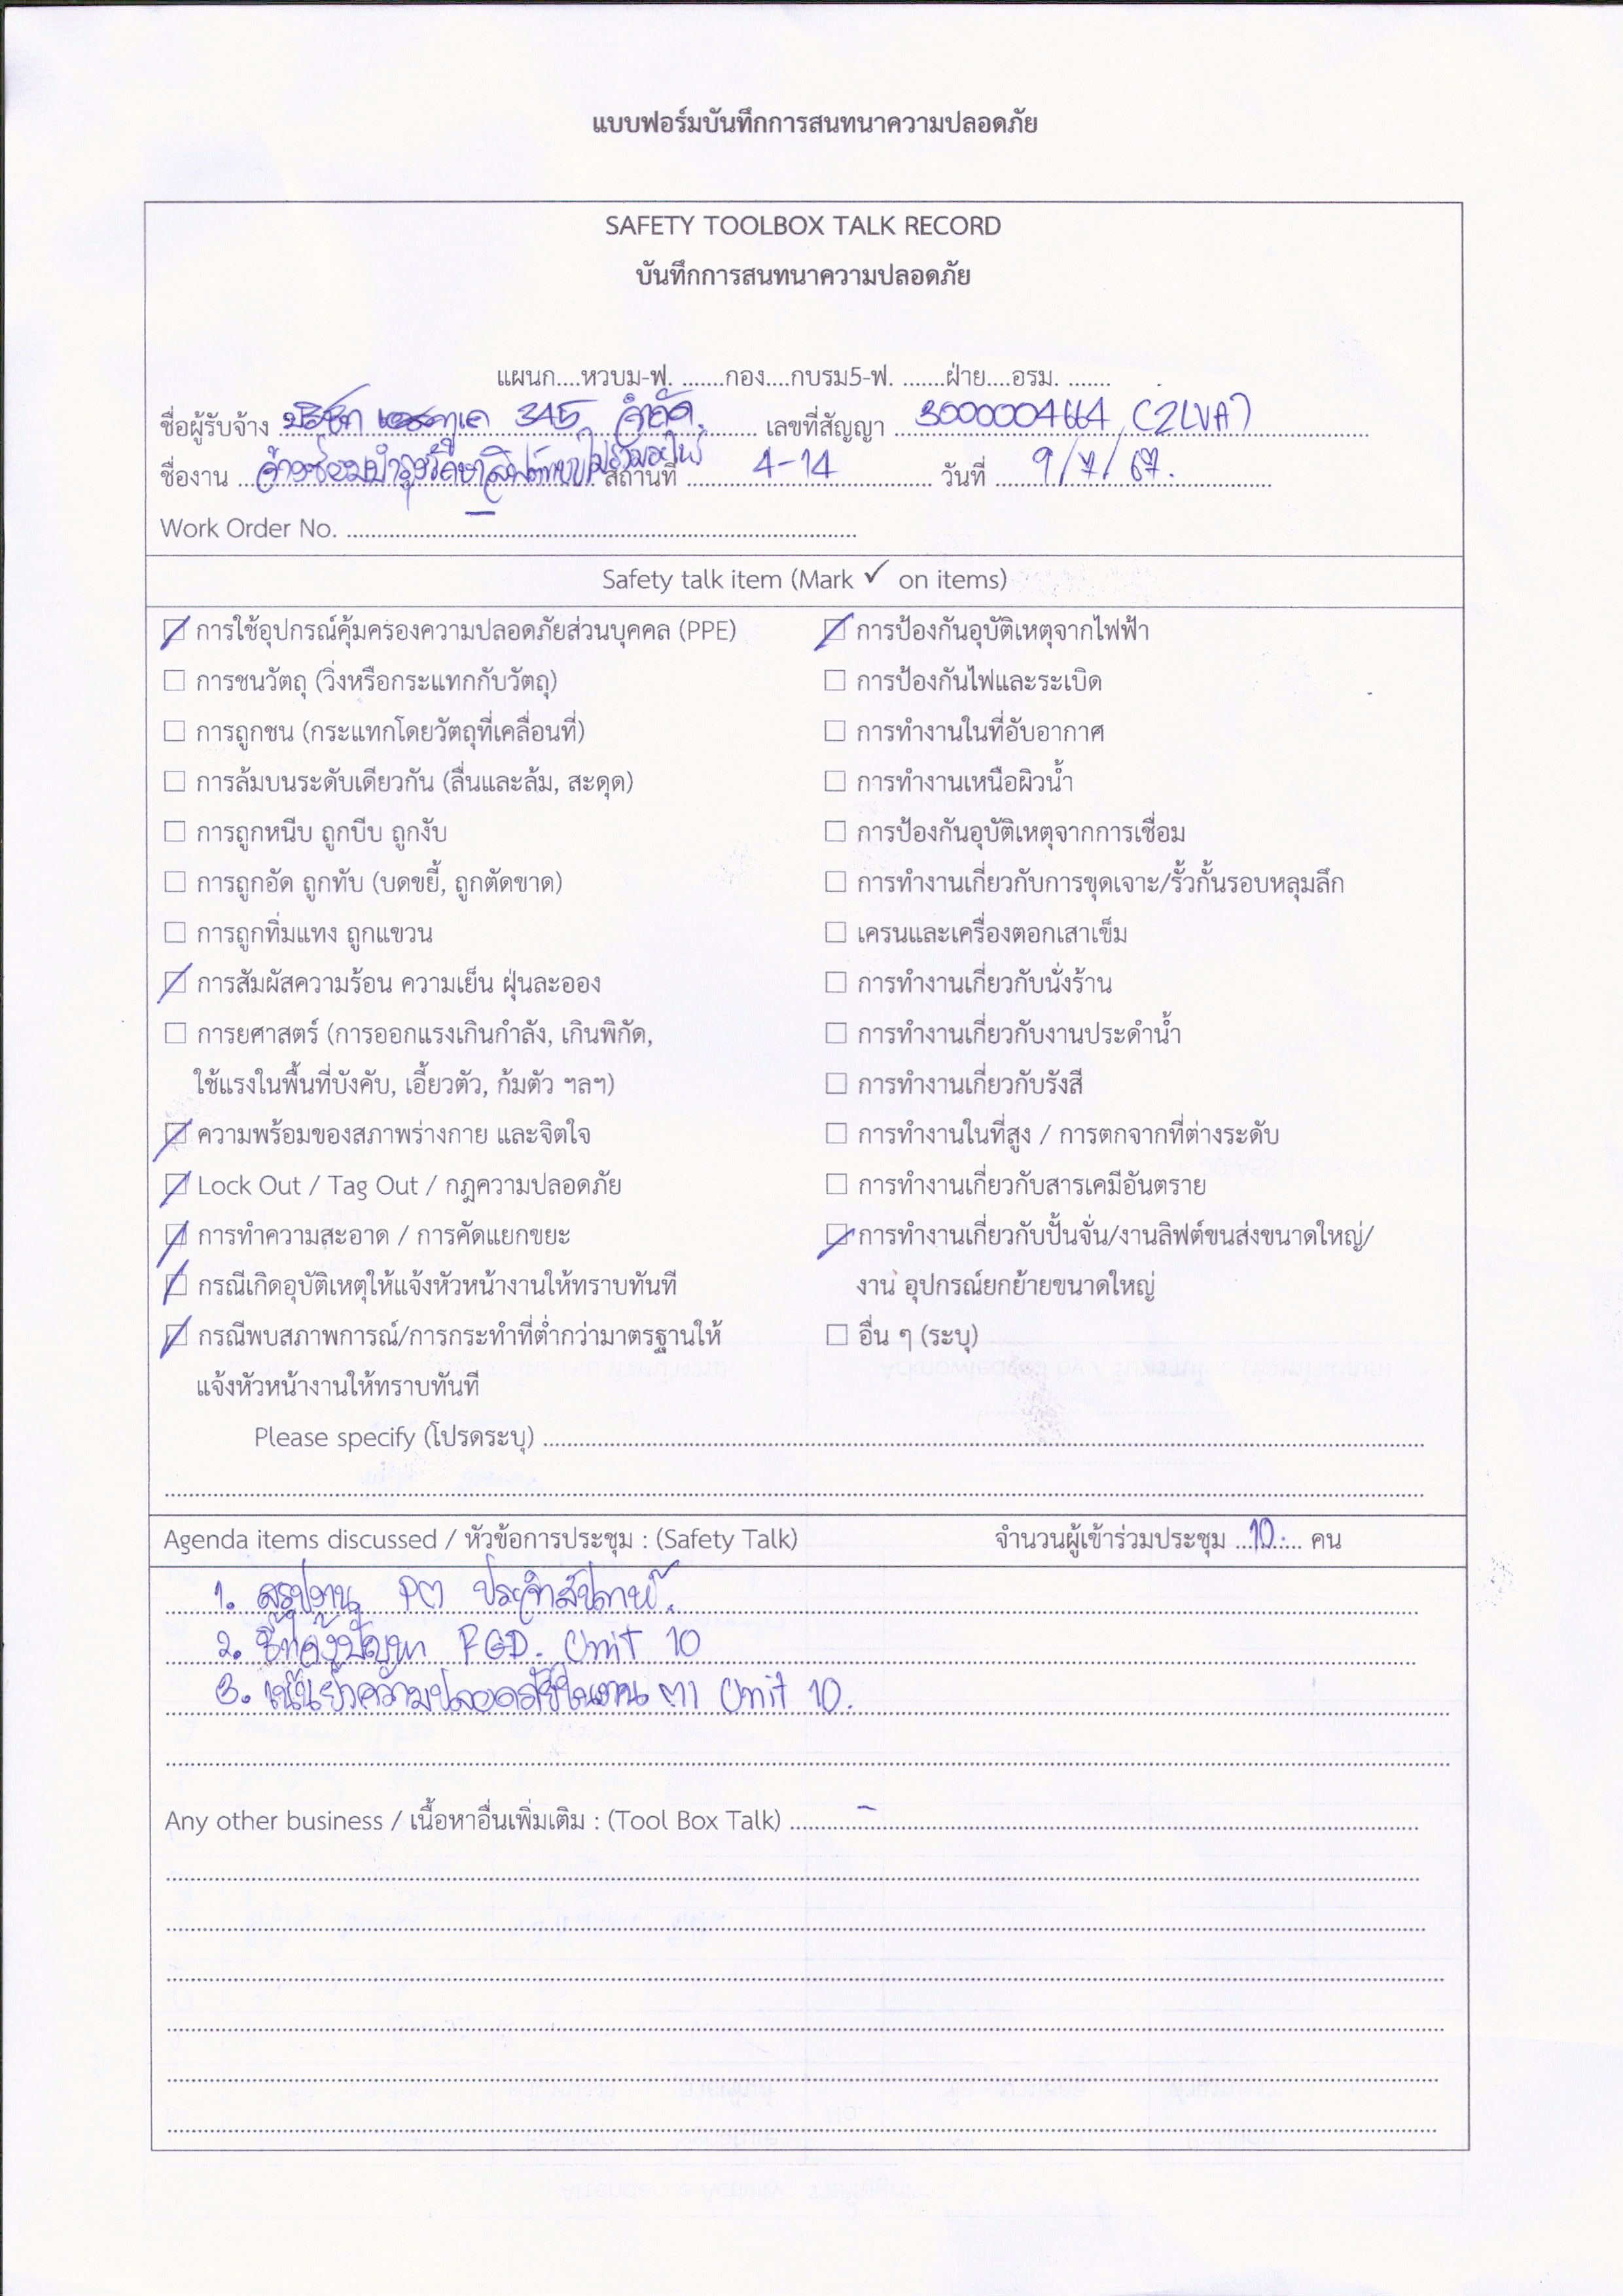 แบบฟอร์มบันทึกการสนทนาความปลอดภัย
SAFETY TOOLBOX TALK RECORD
บันทึกการสนทนาความปลอดภัย
แผนก....หวบม-ฟ. .......กอง....กบรม5-ฟ. .......ฝ่าย....อรม. .......
ชื่อผู้รับจ้าง บริษัท 345 จำกัด. เลขที่สัญญา 3000004664 (ZLVA)
ชื่องาน จ้างซ่อมบำรุงรักษาลิฟต์แบบไม่รวมอะไหล่ สถานที่ 4-14 วันที่ 9/7/67.
Work Order No. –
Safety talk item (Mark ✓ on items)
☑ การใช้อุปกรณ์คุ้มครองความปลอดภัยส่วนบุคคล (PPE) ☑ การป้องกันอุบัติเหตุจากไฟฟ้า
☐ การชนวัตถุ (วิ่งหรือกระแทกกับวัตถุ) ☐ การป้องกันไฟและระเบิด
☐ การถูกชน (กระแทกโดยวัตถุที่เคลื่อนที่) ☐ การทำงานในที่อับอากาศ
☐ การล้มบนระดับเดียวกัน (ลื่นและล้ม, สะดุด) ☐ การทำงานเหนือผิวน้ำ
☐ การถูกหนีบ ถูกบีบ ถูกงับ ☐ การป้องกันอุบัติเหตุจากการเชื่อม
☐ การถูกอัด ถูกทับ (บดขยี้, ถูกตัดขาด) ☐ การทำงานเกี่ยวกับการขุดเจาะ/รั้วกั้นรอบหลุมลึก
☐ การถูกทิ่มแทง ถูกแขวน ☐ เครนและเครื่องตอกเสาเข็ม
☑ การสัมผัสความร้อน ความเย็น ฝุ่นละออง ☐ การทำงานเกี่ยวกับนั่งร้าน
☐ การยศาสตร์ (การออกแรงเกินกำลัง, เกินพิกัด, ☐ การทำงานเกี่ยวกับงานประดำน้ำ
ใช้แรงในพื้นที่บังคับ, เอี้ยวตัว, ก้มตัว ฯลฯ) ☐ การทำงานเกี่ยวกับรังสี
☑ ความพร้อมของสภาพร่างกาย และจิตใจ ☐ การทำงานในที่สูง / การตกจากที่ต่างระดับ
☑ Lock Out / Tag Out / กฎความปลอดภัย ☐ การทำงานเกี่ยวกับสารเคมีอันตราย
☑ การทำความสะอาด / การคัดแยกขยะ ☑ การทำงานเกี่ยวกับปั้นจั่น/งานลิฟต์ขนส่งขนาดใหญ่/
☑ กรณีเกิดอุบัติเหตุให้แจ้งหัวหน้างานให้ทราบทันที งาน อุปกรณ์ยกย้ายขนาดใหญ่
☑ กรณีพบสภาพการณ์/การกระทำที่ต่ำกว่ามาตรฐานให้ ☐ อื่น ๆ (ระบุ)
แจ้งหัวหน้างานให้ทราบทันที
Please specify (โปรดระบุ)
Agenda items discussed / หัวข้อการประชุม : (Safety Talk) จำนวนผู้เข้าร่วมประชุม 10 คน
1. สรุปงาน PM ประจำสัปดาห์.
2. ปัญหา FGD. Unit 10
3. เน้นย้ำความปลอดภัยในงาน MI Unit 10.
Any other business / เนื้อหาอื่นเพิ่มเติม : (Tool Box Talk) –